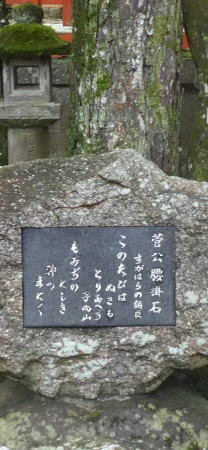 菅公腰掛石
すがはらの朝臣
このたびは
ぬさも
とりあへず
手向山
もみぢの
にしき
神の
まにへ